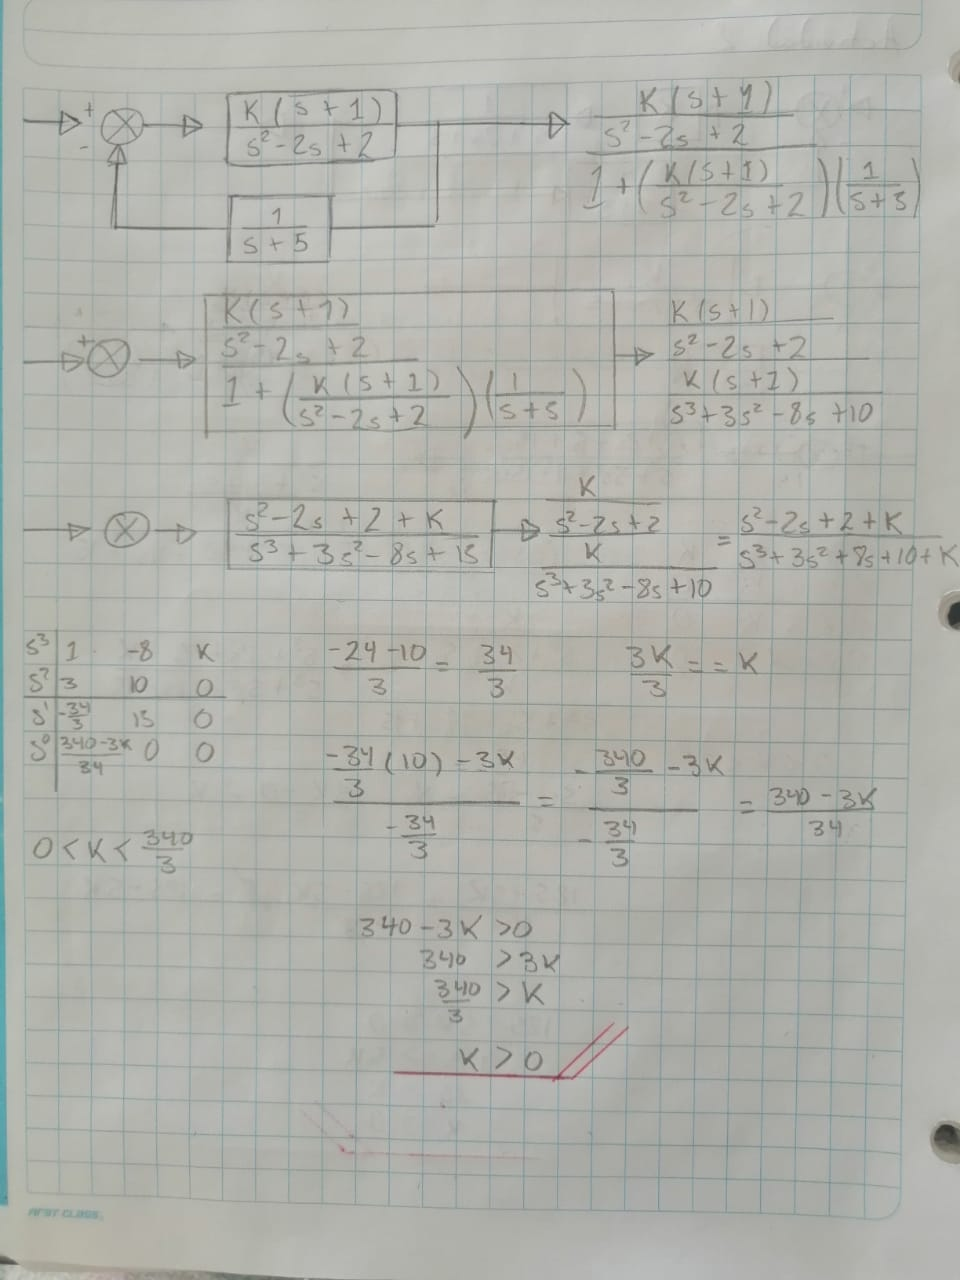 +
-
K(s+1)
s²-2s+2
1
s+5
K(s+1)
s²-2s+2
1+(K(s+1)/s²-2s+2)(1/s+5)
+
K(s+1)
s²-2s+2
1+(K(s+1)/s²-2s+2)(1/s+5)
K(s+1)
s²-2s+2
K(s+1)
s³+3s²-8s+10
s²-2s+2+K
s³+3s²-8s+15
K
s²-2s+2
K
s³+3s²-8s+10
= s²-2s+2+K
s³+3s²+8s+10+K
s³ 1 -8 K
s² 3 10 0
s¹ -34/3 15 0
s⁰ 340-3K/34 0 0
0<K<340/3
-24-10/3 = 34/3
3K/3 = = K
-34/3 (10) - 3K / -34/3 = -340/3 - 3K / -34/3 = 340-3K/34
340-3K>0
340 >3K
340/3 >K
K>0
FIRST CLASS.